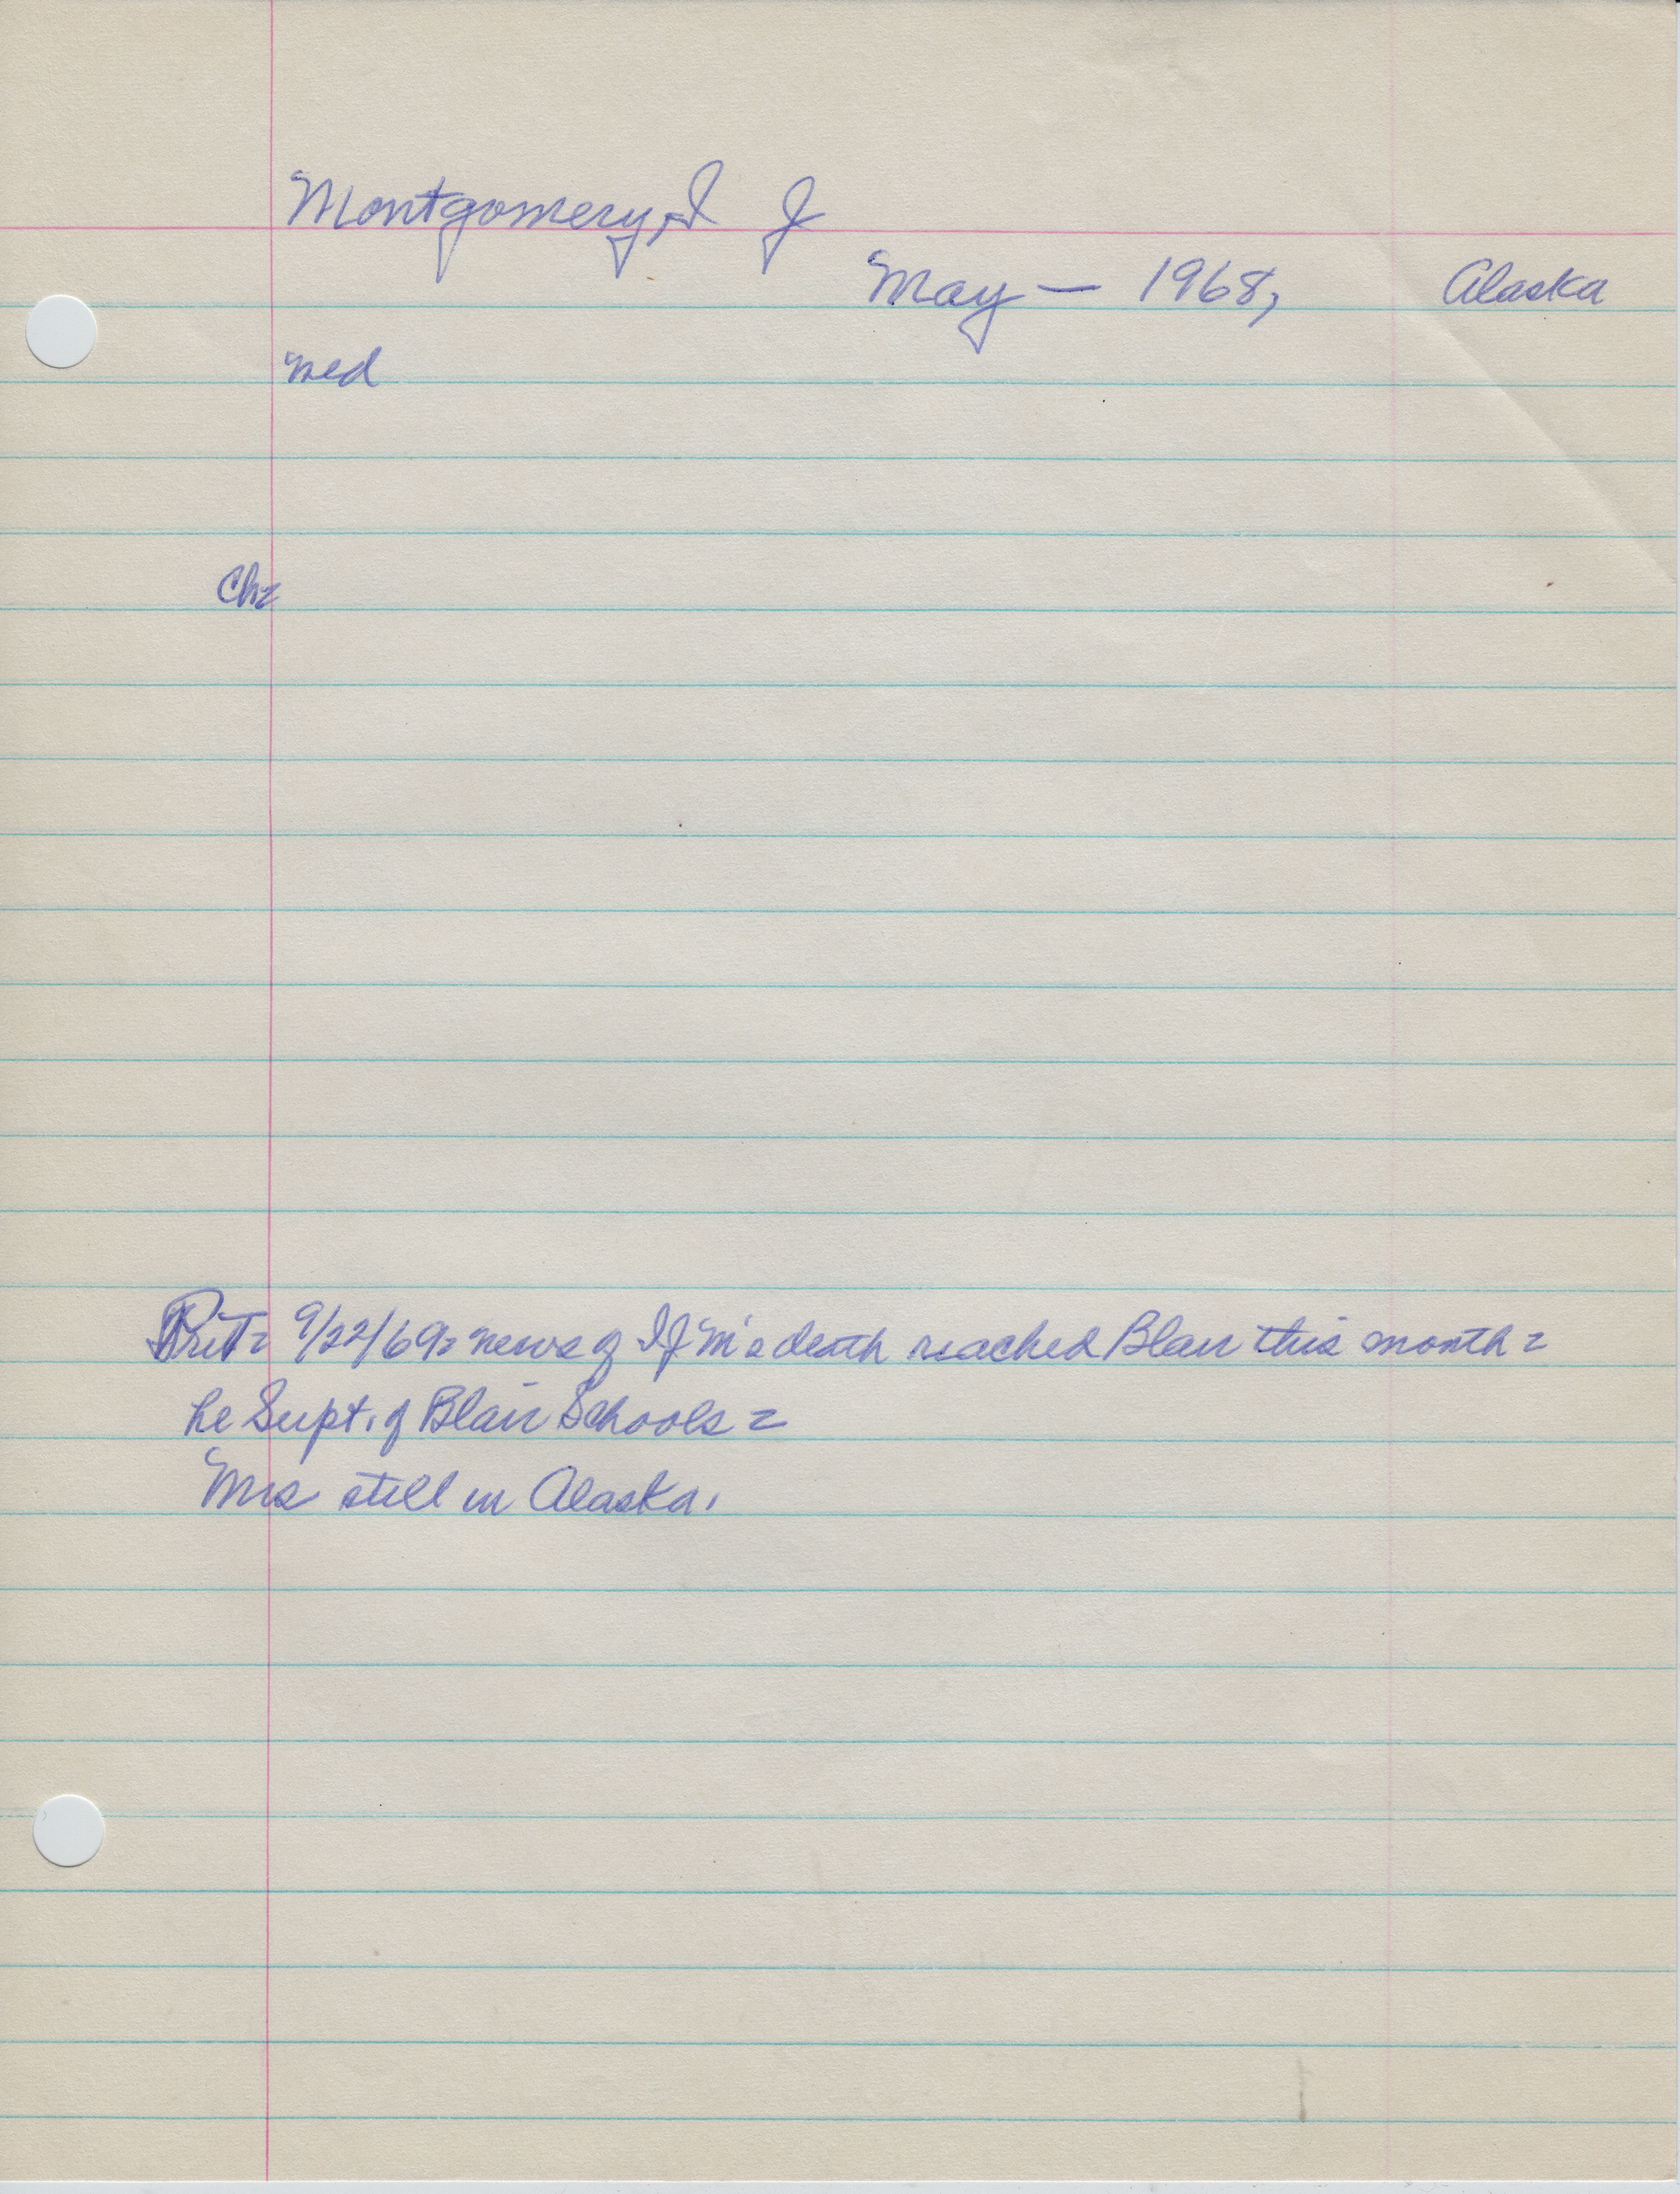 Montgomery, I J
May — 1968, Alaska
med
Ch=
9/22/69= news of I J M's death reached Blair this month =
he Supt. of Blair Schools =
Mrs still in Alaska.